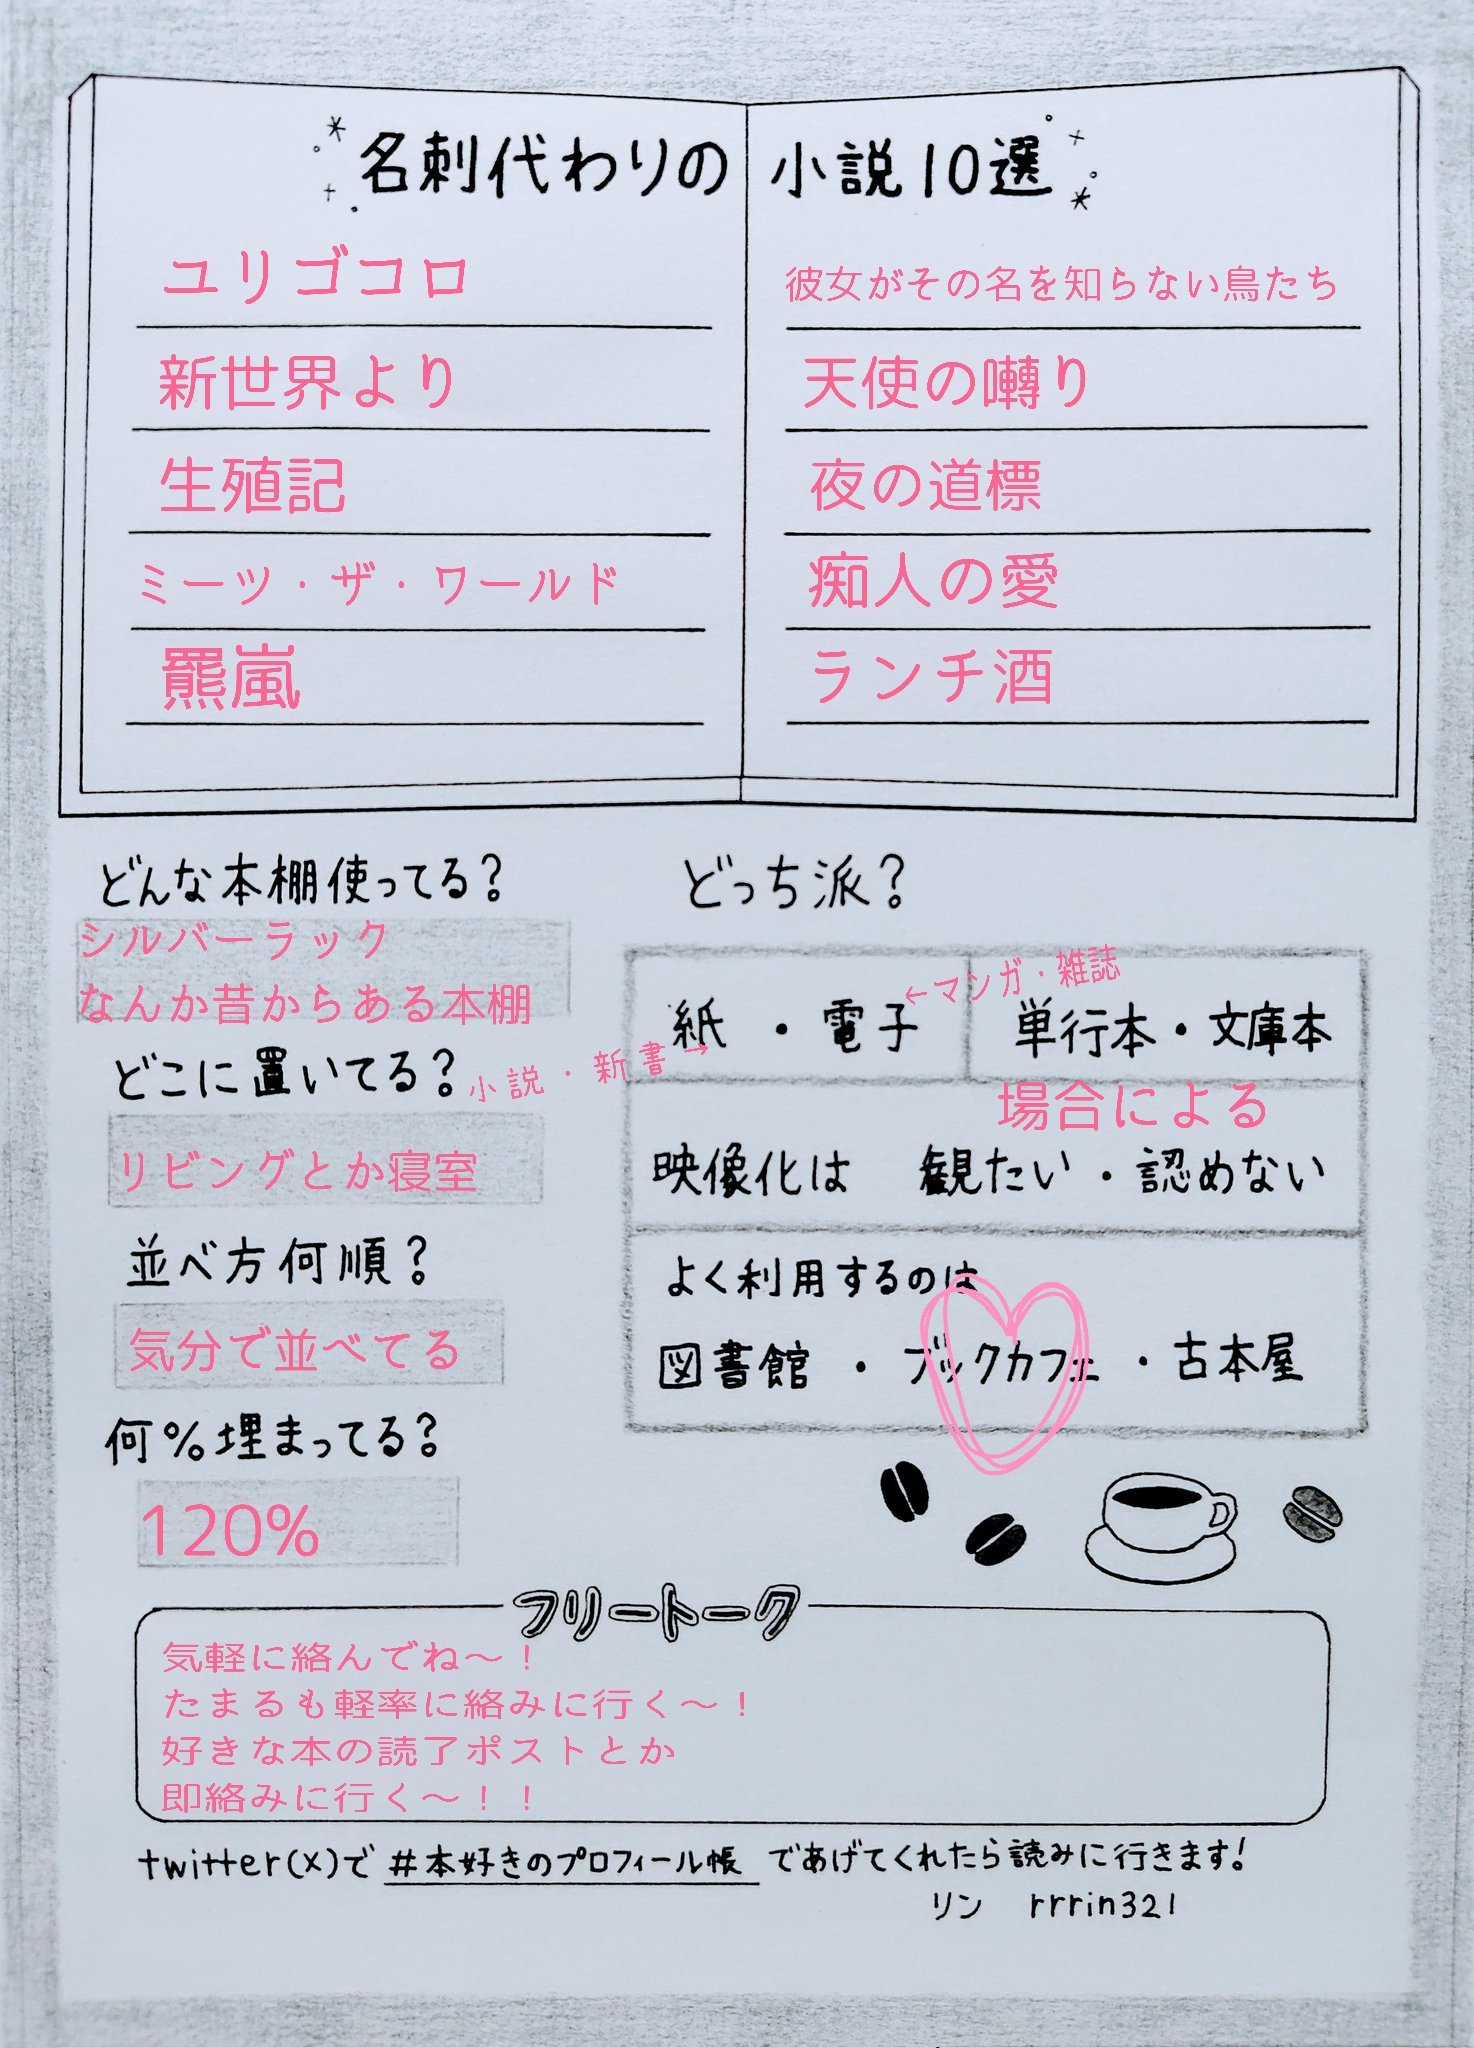 名刺代わりの小説10選
ユリゴコロ
新世界より
生殖記
ミーツ・ザ・ワールド
羆嵐
彼女がその名を知らない鳥たち
天使の囀り
夜の道標
痴人の愛
ランチ酒
どんな本棚使ってる?
シルバーラック
なんか昔からある本棚
どこに置いてる?
リビングとか寝室
並べ方何順?
気分で並べてる
何%埋まってる?
120%
どっち派?
←マンガ・雑誌
紙・電子
単行本・文庫本
小説・新書→
場合による
映像化は 観たい・認めない
よく利用するのは
図書館・ブックカフェ・古本屋
フリートーク
気軽に絡んでね〜!
たまるも軽率に絡みに行く〜!
好きな本の読了ポストとか
即絡みに行く〜!!
twitter(x)で #本好きのプロフィール帳 であげてくれたら読みに行きます!
リン rrrin321